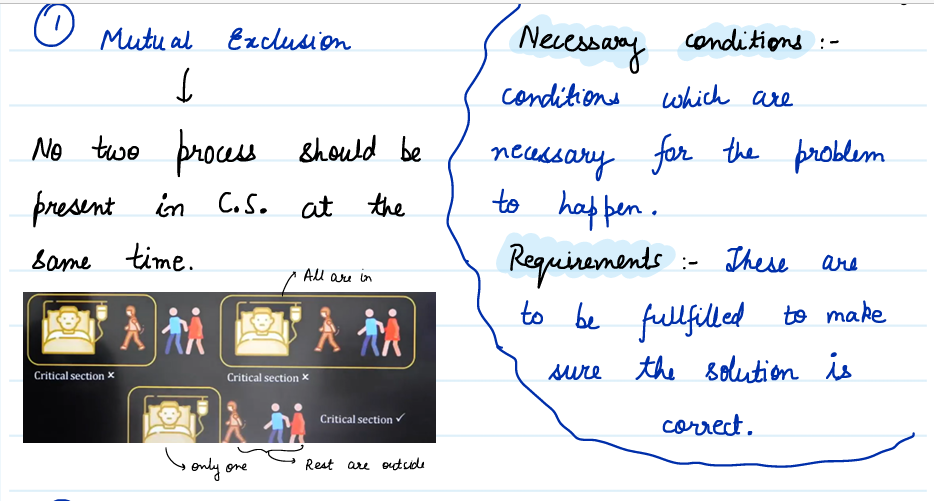 1 Mutual Exclusion
No two process should be
present in C.S. at the
same time.
All are in
Critical section ×
Critical section ×
Critical section ✓
only one
Rest are outside
Necessary conditions :-
conditions which are
necessary for the problem
to happen.
Requirements :- These are
to be fullfilled to make
sure the solution is
correct.